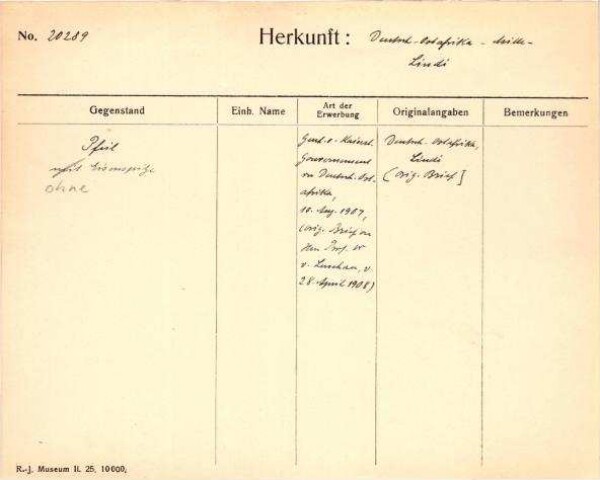 No. 20289 Herkunft: Deutsch-Ostafrika -
Lindi
Gegenstand Einh. Name Art der Erwerbung Originalangaben Bemerkungen
Pfeil
mit Eisenspitze
ohne
Gesch. v. Kaiserl.
Gouvernement
von Deutsch-Ost-
afrika,
10. Aug. 1907,
(orig. Brief an
Herr Prof. Dr
v. Luschan, v.
28. April 1908)
Deutsch. Ostafrika,
Lindi
(orig. Brief]
R.-J. Museum II. 25. 10000.